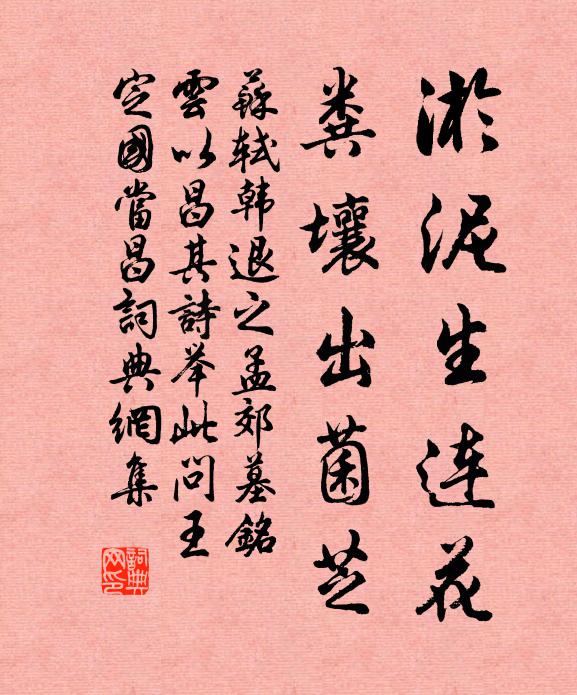 淤泥生连花
粪壤出菌芝
蘇軾韩退之孟郊墓銘
雲以昌其詩举此问王
定國當昌詞典網集
詞典网印